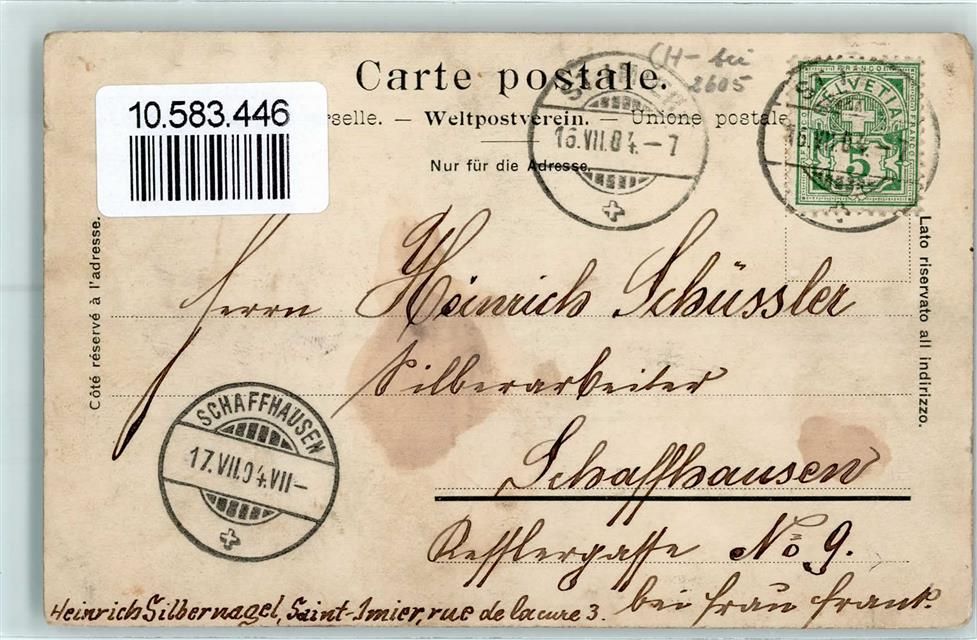 CH- bei
2605
Carte postale.
10.583.446
rselle. — Weltpostverein. — Unione postale
Nur für die Adresse.
16.VII.04.-7
HELVETIA
FRANCO
5
16.VII.04.-7
Côté réservé à l'adresse.
Lato riservato all indirizzo.
Herrn Heinrich Schüssler
Silberarbeiter
Schaffhausen
Kesslergasse No 9.
bei Frau Frank.
SCHAFFHAUSEN
17.VII.04.VII-
Heinrich Silbernagel, Saint-Imier, rue de la cure 3.